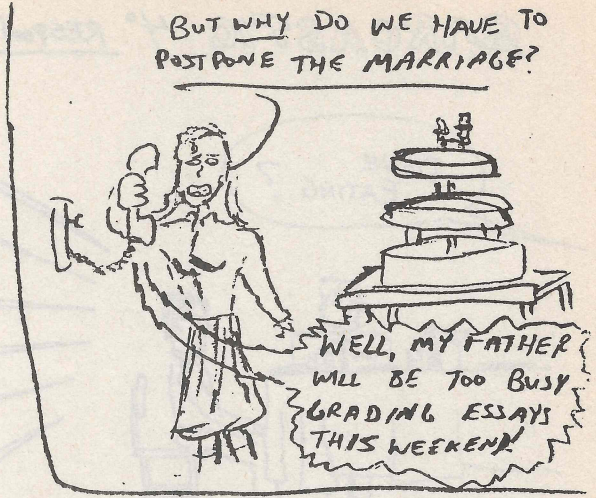 BUT WHY DO WE HAVE TO
POSTPONE THE MARRIAGE?
WELL, MY FATHER
WILL BE TOO BUSY
GRADING ESSAYS
THIS WEEKEND!